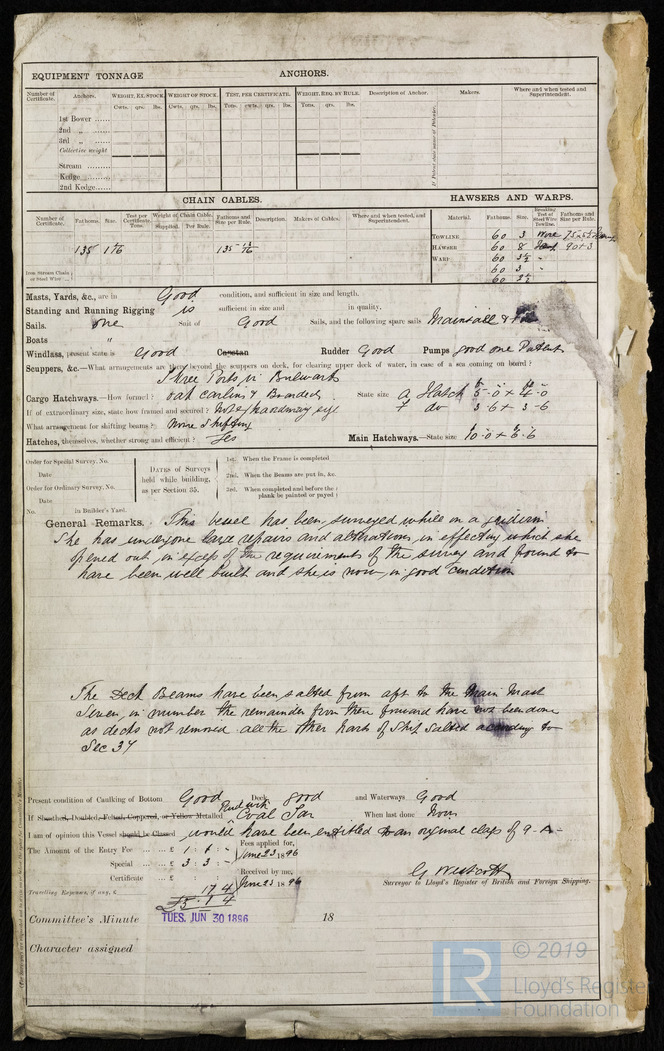 EQUIPMENT TONNAGE
ANCHORS.
Number of Certificate. Anchors. WEIGHT, EX. STOCK. WEIGHT OF STOCK. TEST, PER CERTIFICATE. WEIGHT, REQ. BY RULE. Description of Anchor. Makers. Where and when tested and Superintendent.
Cwts. qrs. lbs. Cwts. qrs. lbs. Tons. cwts. qrs. lbs. Tons. qrs. lbs.
1st Bower ......
2nd „ ......
3rd „ ......
Collective weight
Stream .........
Kedge .........
2nd Kedge...
CHAIN CABLES. HAWSERS AND WARPS.
Number of Certificate. Fathoms. Size. Test per Certificate. Tons. Weight of Chain Cable. Supplied. Per Rule. Fathoms and Size per Rule. Description. Makers of Cables. Where and when tested, and Superintendent. Material. Fathoms. Size. Breaking Test of Steel Wire Towline. Fathoms and Size per Rule.
TOWLINE 60 3 Wire
135 135 HAWSER 60 8 90 + 3
WARP 60 3½ "
60 3 "
Iron Stream Chain or Steel Wire ... 60 2½
Masts, Yards, &c., are in Good condition, and sufficient in size and length.
Standing and Running Rigging is sufficient in size and in quality.
Sails. one Suit of Good Sails, and the following spare sails Mainsail &
Boats "
Windlass, present state is Good Capstan Rudder Good Pumps good one Patent
Scuppers, &c.—What arrangements are they beyond the scuppers on deck, for clearing upper deck of water, in case of a sea coming on board?
Three Ports in Bulwarks
Cargo Hatchways.—How formed? oak carlins & Boarded State size A Hatch 5-0 x 4-0
If of extraordinary size, state how framed and secured? Not extraordinary size F do 3-6 + 3-6
What arrangement for shifting beams? None Shifting
Hatches, themselves, whether strong and efficient? Yes Main Hatchways.—State size 10-0 + 6-6
Order for Special Survey, No.
Date
Order for Ordinary Survey, No.
Date
No. in Builder's Yard.
DATES of Surveys held while building, as per Section 35.
1st. When the Frame is completed
2nd. When the Beams are put in, &c.
3rd. When completed and before the plank be painted or payed
General Remarks. This vessel has been surveyed while on a gridiron
She has undergone large repairs and alterations, in effecting which she
opened out, in excess of the requirements of the survey and found to
have been well built and she is now in good condition
The Deck Beams have been salted from aft to the Main Mast
Seven, in number the remainder from there forward have not been done
as decks not removed all the other parts of Ship Salted according to
Sec 37
Present condition of Caulking of Bottom Good Deck good and Waterways Good
If Sheathed, Doubled, Felted, Coppered, or Yellow Metalled Paid with Coal Tar When last done Now
I am of opinion this Vessel should be Classed would have been entitled to an original class of 9-A-
The Amount of the Entry Fee ... £ 1 : 1 : - Fees applied for, June 23 1896
Special ... £ 3 : 3 : -
Certificate ... £ : : Received by me, June 23 1896
Travelling Expenses, if any, £ 17.4
£5.1.4
G Westcott
Surveyor to Lloyd's Register of British and Foreign Shipping.
Committee's Minute TUES. JUN 30 1896 18
Character assigned
© 2019
LR Lloyd's Register
Foundation